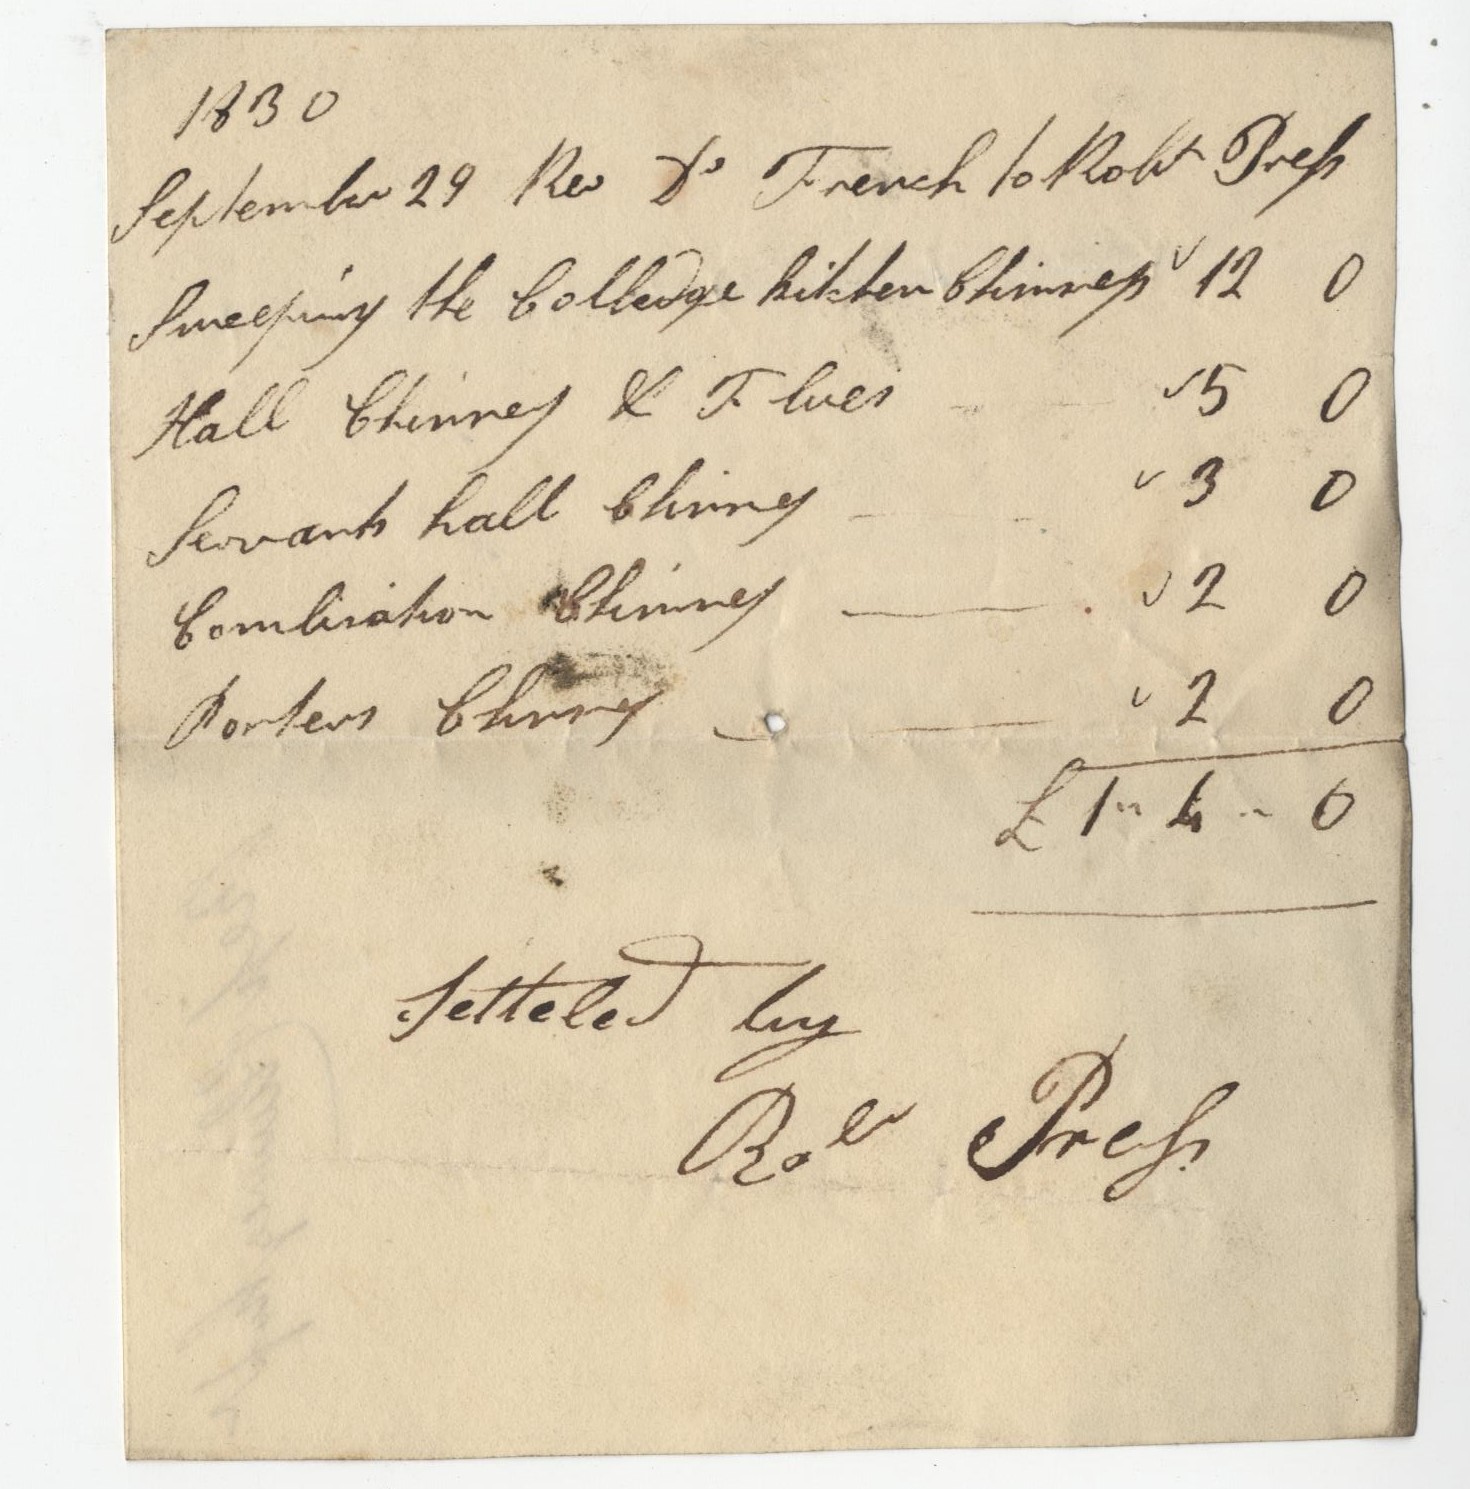 1830
September 29 Rev Dr French to Robt Press
Sweeping the Colledge kitchen Chimneys ✓ 12 0
Hall Chimney & Flues ✓ 5 0
Servants hall Chimney ✓ 3 0
Combination Chimney ✓ 2 0
Porters Chimney ✓ 2 0
£ 1 " 4 " 0
Setteled by
Press